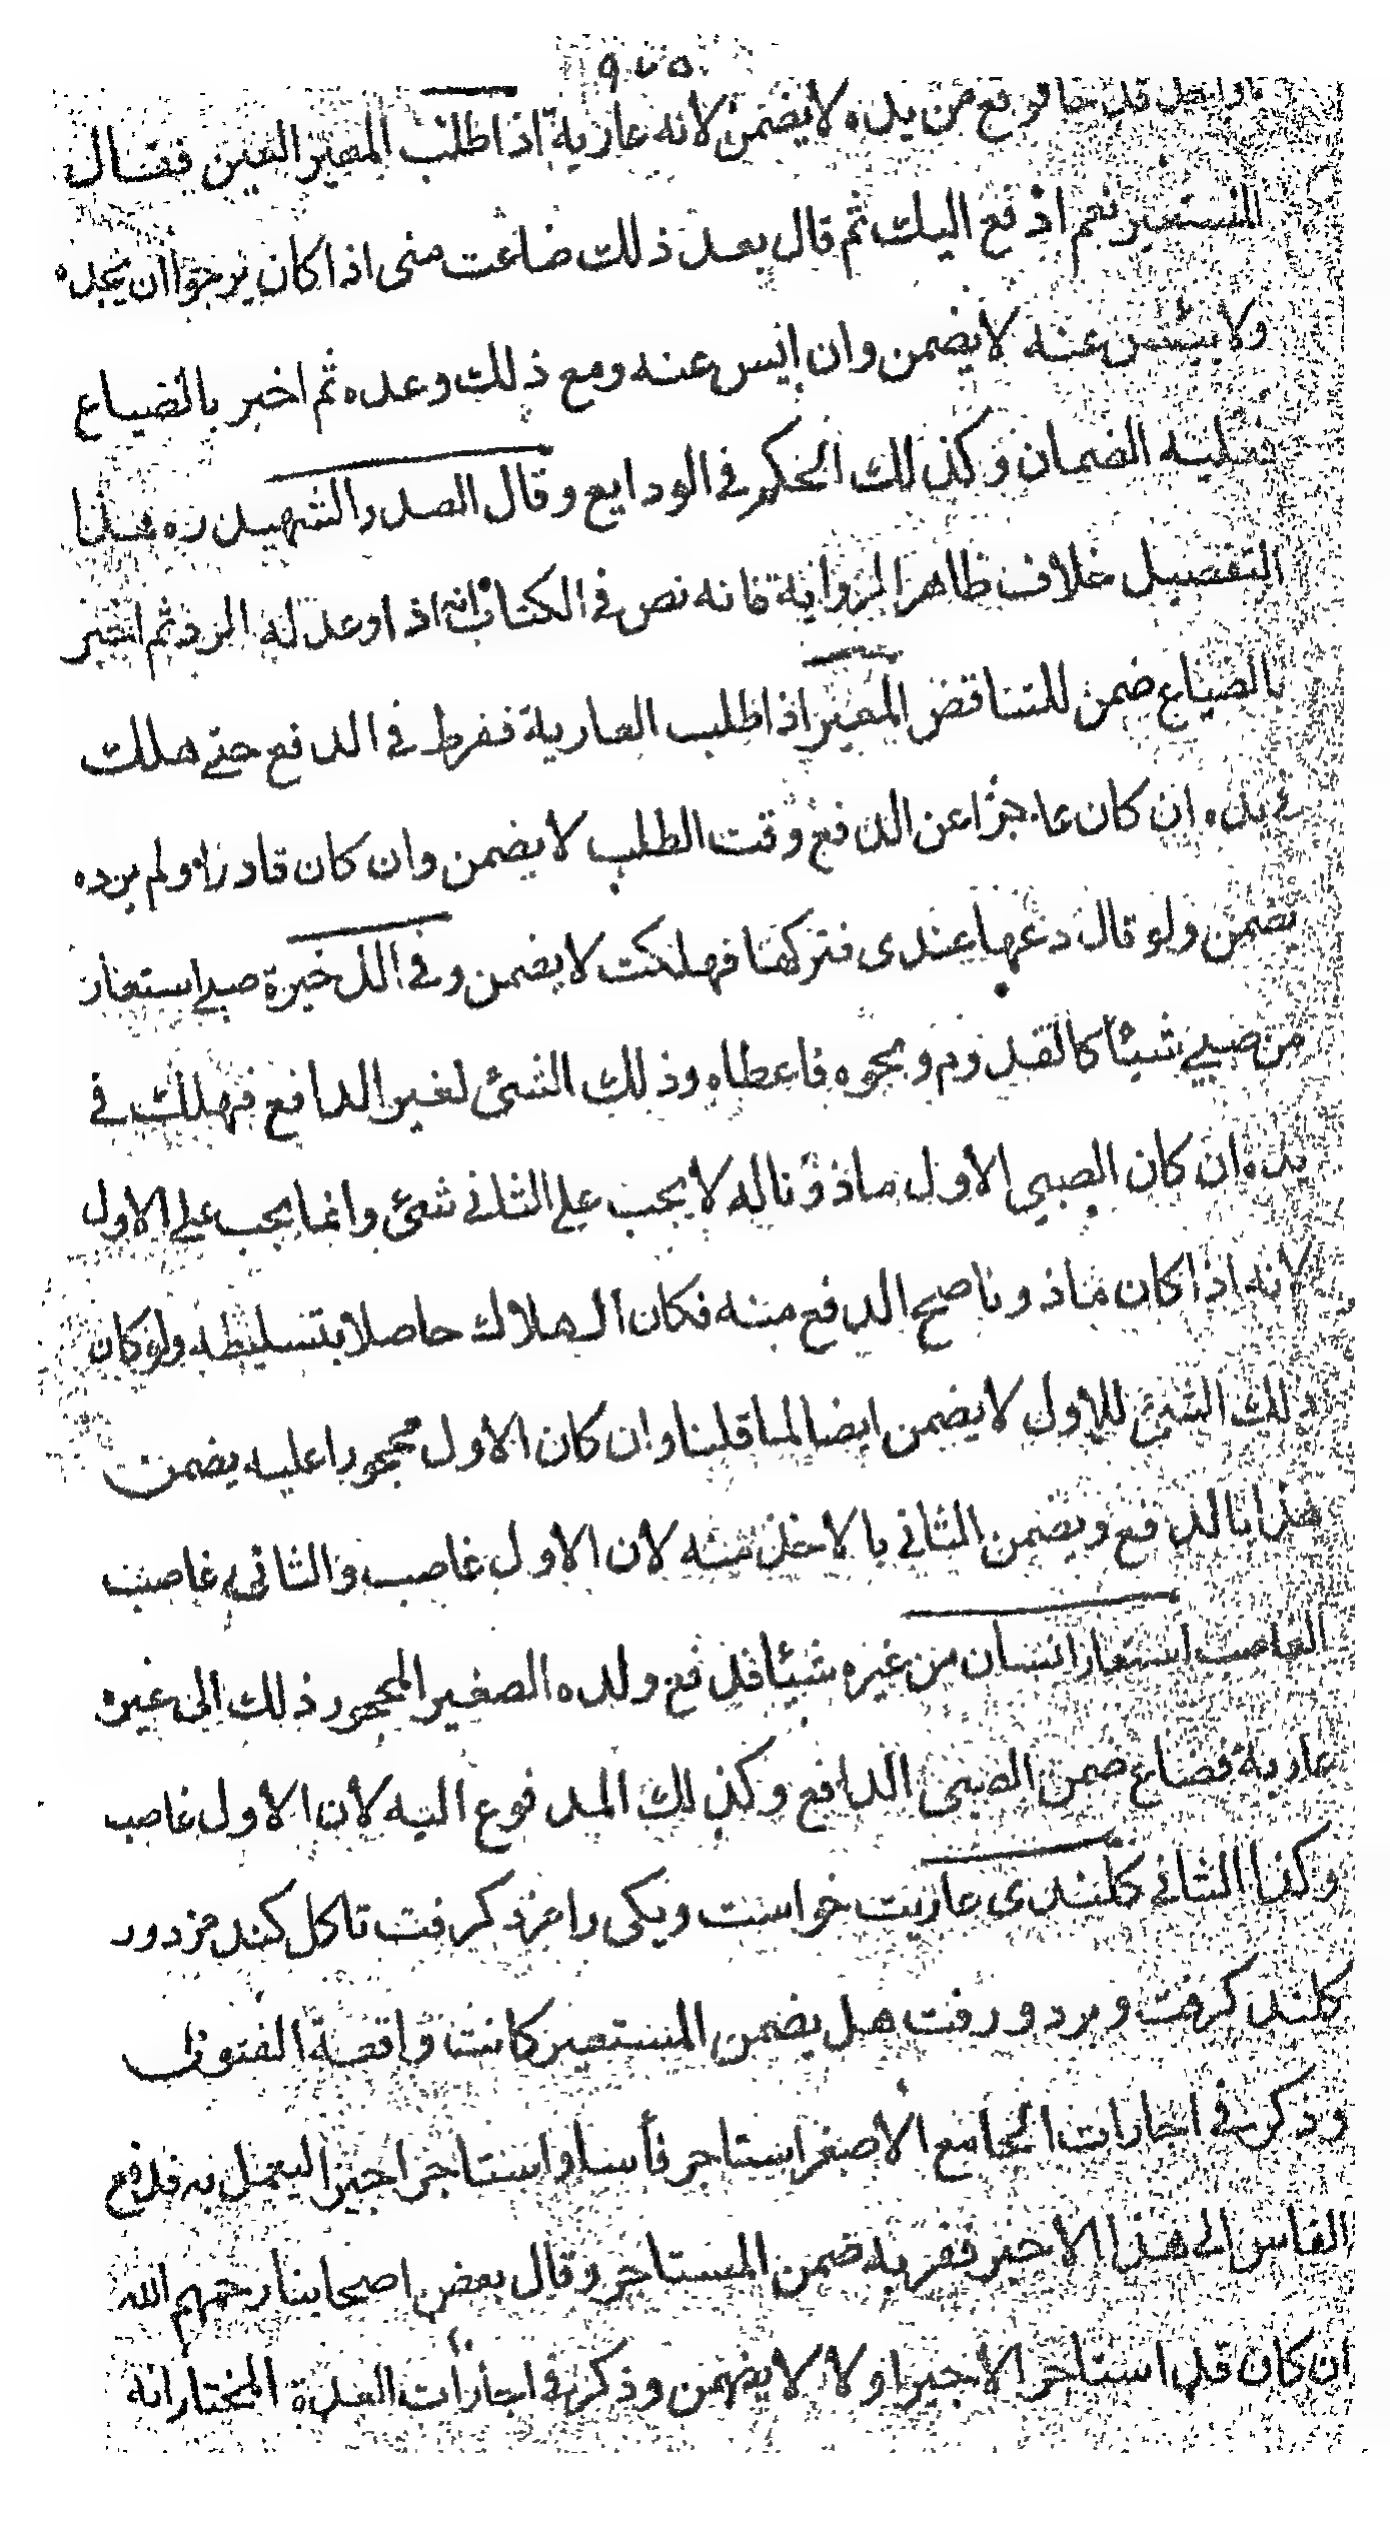 فوقع من يده لا يضمن لانه عارية اذا طلب المعير العين فقال
المستعير نعم ادفع اليك ثم قال بعد ذلك ضاعت منى اذا كان يرجوا ان يجده
ولا ييئس عنه لا يضمن وان ايس عنه ومع ذلك وعده ثم اخبر بالضياع
فعليه الضمان وكذلك الحكم في الودايع وقال الصدر الشهيد ره هذا
التفصيل خلاف ظاهر الرواية فانه نص في الكتاب انه اذا وعد له الرد ثم اخبر
بالضياع ضمن للتناقض المعير اذا طلب العارية ففرط في الدفع حتے هلك
في يده ان كان عاجزا عن الدفع وقت الطلب لا يضمن وان كان قادرا ولم يرده
يضمن ولو قال دعها عندى فتركها فهلكت لا يضمن وفي الذخيرة صبي استعار
من صبي شيئا كالقدوم ونحوه فاعطاه وذلك الشئ لغير الدافع فهلك في
يده ان كان الصبي الاول ماذونا له لا يجب على الثاني شئ وانما يجب على الاول
لانه اذا كان ماذونا صح الدفع منه فكان الهلاك حاصلا بتسليطه ولو كان
ذلك الشئ للاول لا يضمن ايضا لما قلنا وان كان الاول محجورا عليه يضمن
هذا بالدفع ويضمن الثاني بالاخذ منه لان الاول غاصب والثاني غاصب
الغاصب استعار انسان من غيره شيئا فدفع ولده الصغير المحجور ذلك الى غيره
عارية فضاع ضمن الصبي الدافع وكذلك المدفوع اليه لان الاول غاصب
وكذا الثاني كلندى عاريت خواست ويكى را مزد كرفت تا كل كند مزدور
كلند كرفت وبرد ورفت هل يضمن المستعير كانت واقعة الفتوى
وذكر في اجارات الجامع الاصغر استاجر فأسا واستاجر اجيرا ليعمل به فدفع
الفاس الى هذا الاجير ففر به ضمن المستاجر وقال بعض اصحابنا رحمهم الله
ان كان قد استاجر الاجير اولا لا يضمن وذكر في اجارات العدة المختار انه